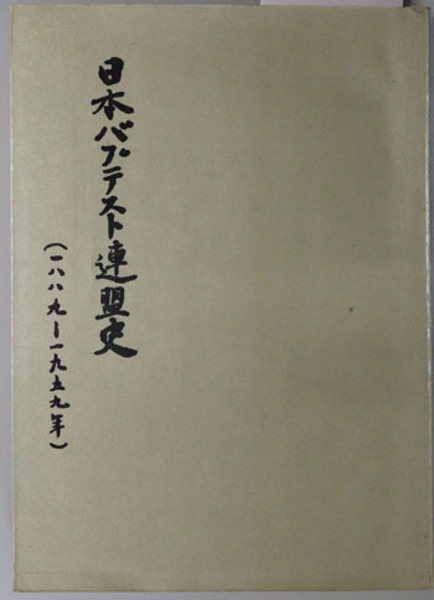 日本バプテスト連盟史
(一八八九ー一九五九年)